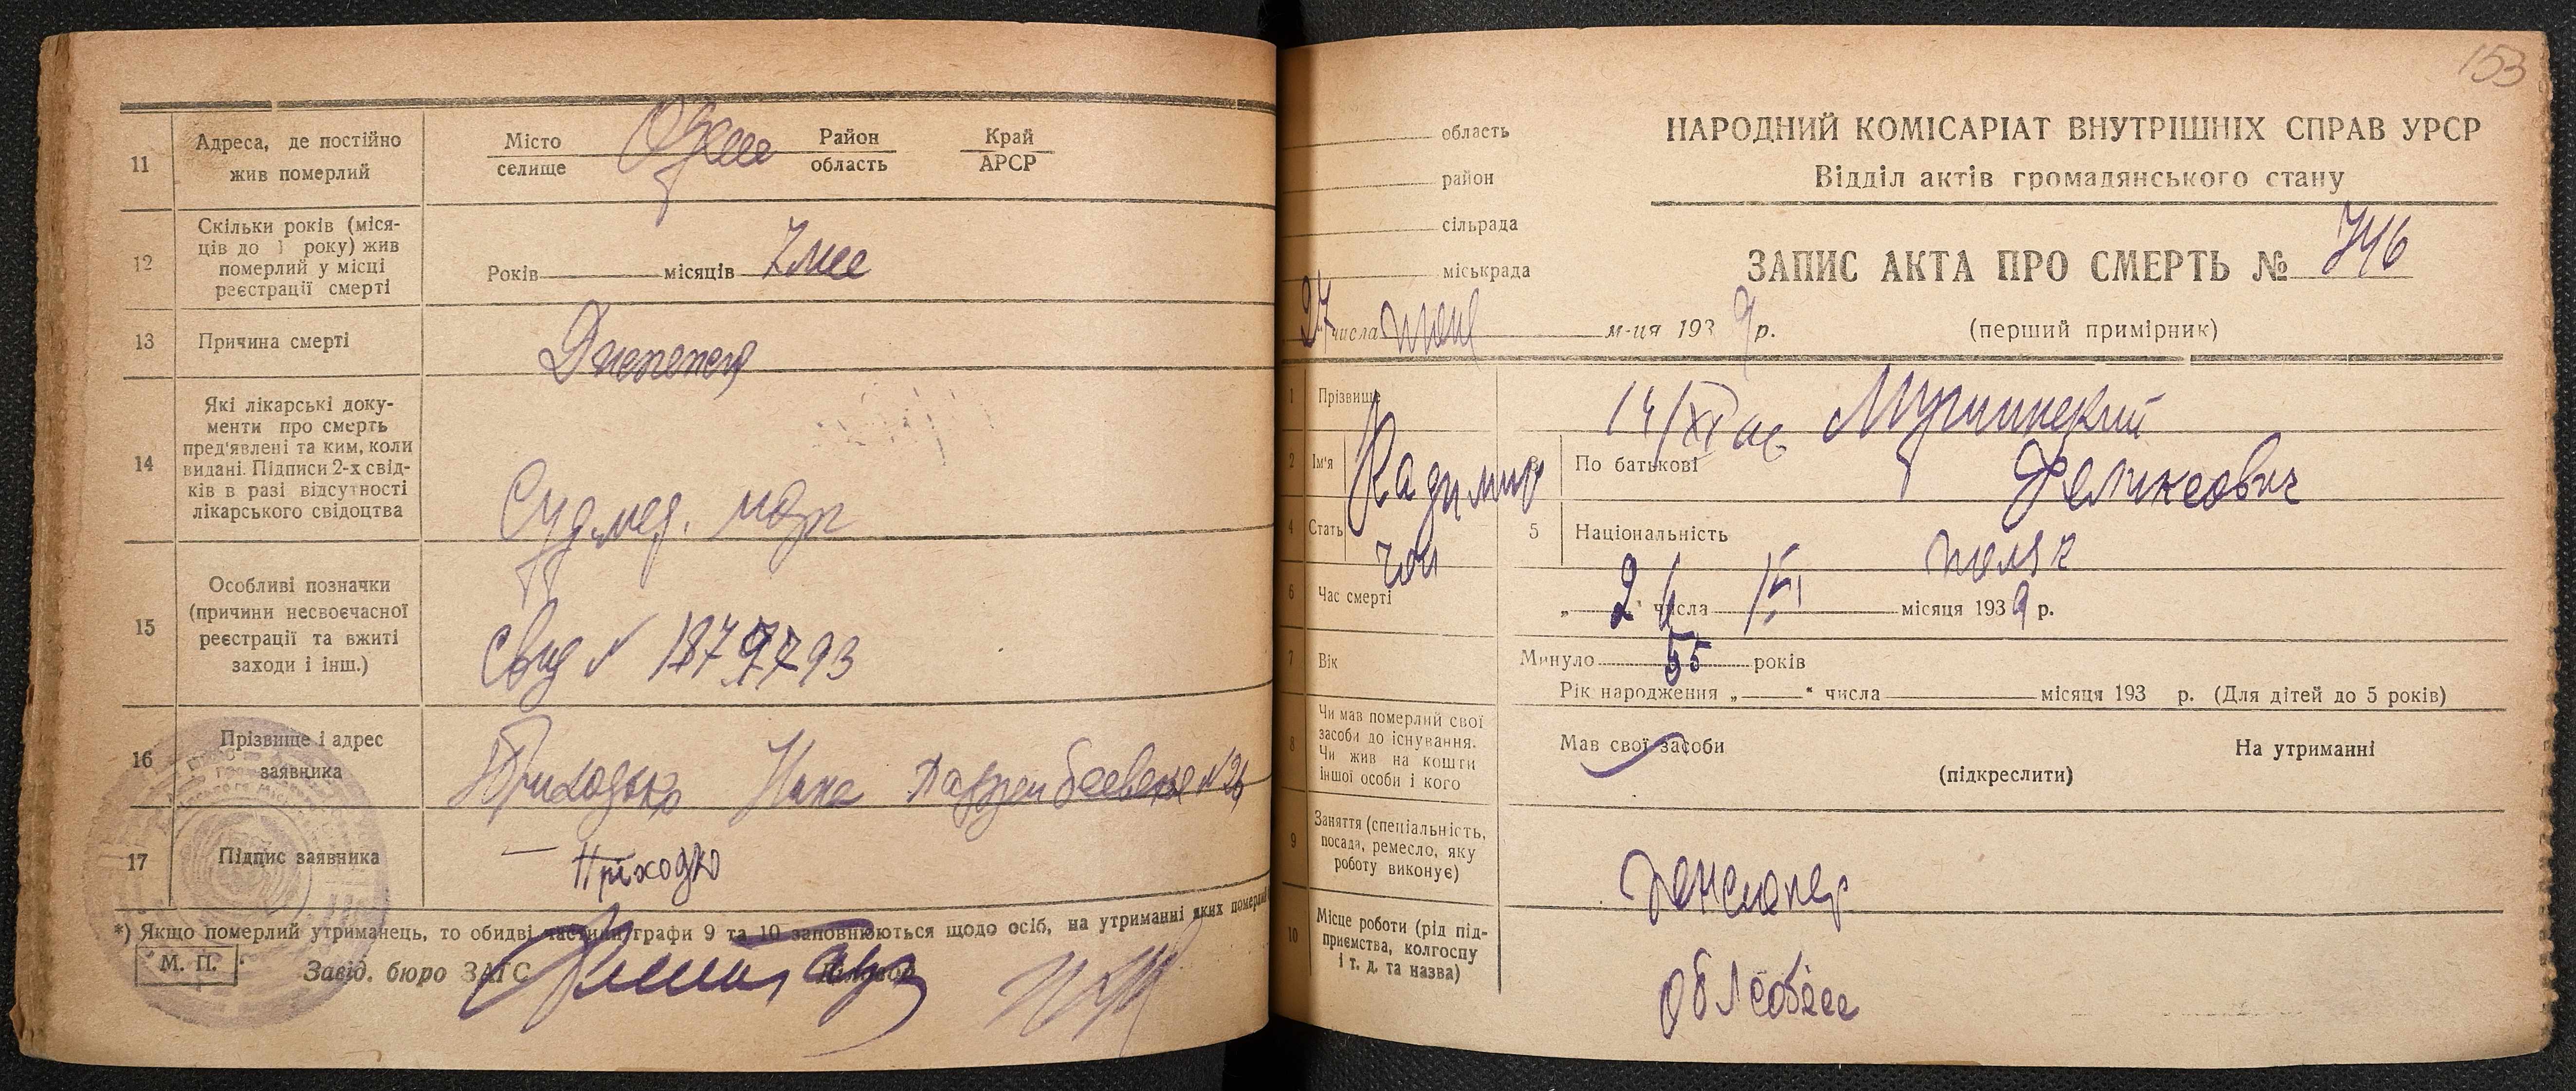 11
Адреса, де постійно
жив померлий
Місто
селище
Район
область
Край
АРСР
12
Скільки років (міся-
ців до 1 року) жив
померлий у місці
реєстрації смерті
Років місяців 7 мес
13
Причина смерти
14
Які лікарські доку-
менти про смерть
пред'явлені та ким, коли
видані. Підписи 2-х свід-
ків в разі відсутності
лікарського свідоцтва
Суд. мед. морг
15
Особливі позначки
(причини несвоєчасної
реєстрації та вжиті
заходи і інш.)
Свид №
16
Прізвище і адрес
заявника
Приходько Нина
17
Підпис заявника
Приходко
*) Якщо померлий утриманець, то обидві частини графи 9 та 10 заповнюються щодо осіб, на утриманні яких
М. П.
Завід. бюро ЗАГС
153
область
район
сільрада
міськрада
27 числа м-ця 1939 р.
НАРОДНИЙ КОМІСАРІАТ ВНУТРІШНІХ СПРАВ УРСР
Відділ актів громадянського стану
ЗАПИС АКТА ПРО СМЕРТЬ № 746
(перший примірник)
1
Прізвище
2
Ім'я
По батькові Феликсович
4
Стать
5
Національність поляк
6
Час смерті
числа місяця 1939 р.
7
Вік
Минуло 55 років
Рік народження „ " числа місяця 193 р. (Для дітей до 5 років)
8
Чи мав померлий свої
засоби до існування.
Чи жив на кошти
іншої особи і кого
Мав свої засоби
На утриманні
(підкреслити)
9
Заняття (спеціальність,
посада, ремесло, яку
роботу виконує)
Пенсионер
10
Місце роботи (рід під-
приємства, колгоспу
і т. д. та назва)